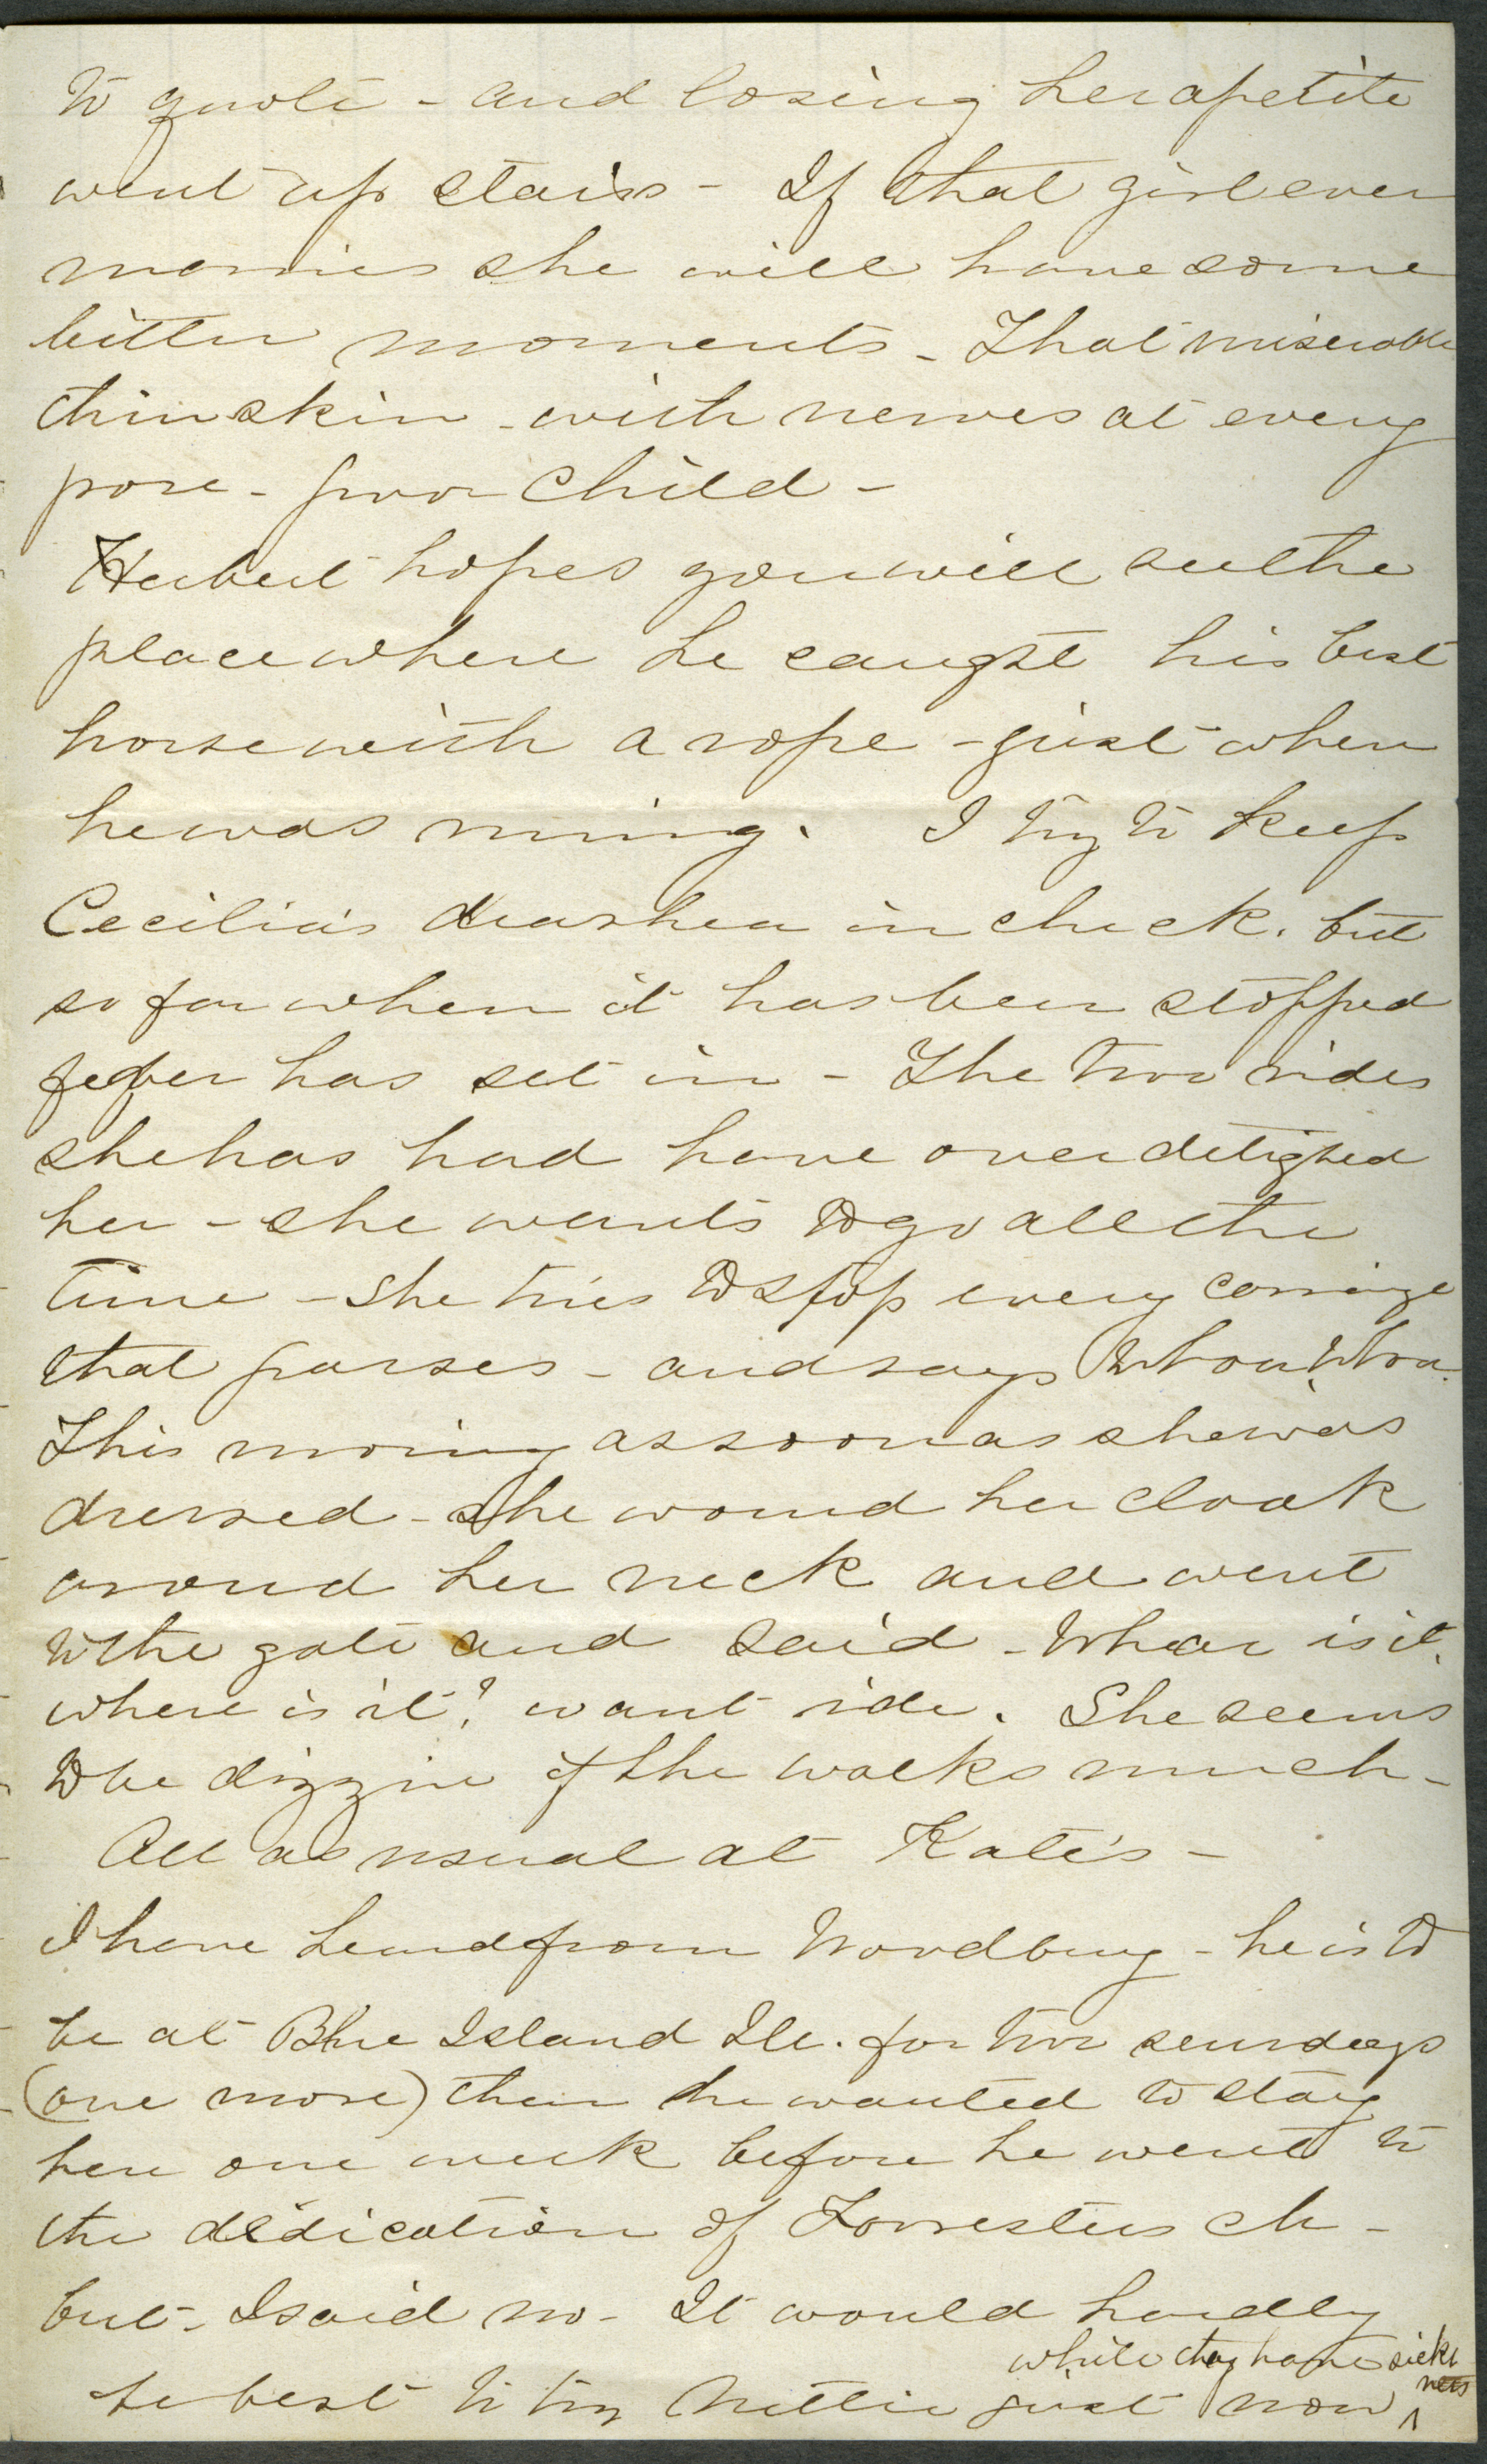 to quote - and losing her apetite
went up stairs - If that girl ever
marries she will have some
bitter moments - That miserable
thin skin - with nerves at every
pore - poor child -
Herbert hopes you will see the
place where he caught his best
horse with a rope - just when
he was runing. I try to keep
Cecilia's diarhea in check. but
so far when it has been stopped
fever has set in - The two rides
she has had have over delighted
her - she wants to go all the
time - She tries to stop every carriage
that passes - and says Whoa Whoa.
This moring as soon as she was
dressed - she wound her cloak
around her neck and went
to the gate and said - Whear is it,
where is it? want ride. She seems
to be dizzie if she walks much -
All as usual at Kate's -
I have heard from Woodbury - he is to
be at Blue Island Ill. for two sundays
(one more) then he wanted to stay
here one week before he went to
the dedication of Forresters ch -
but - I said no - It would hardly
be best to try Nettie just now ^ while they have sickness